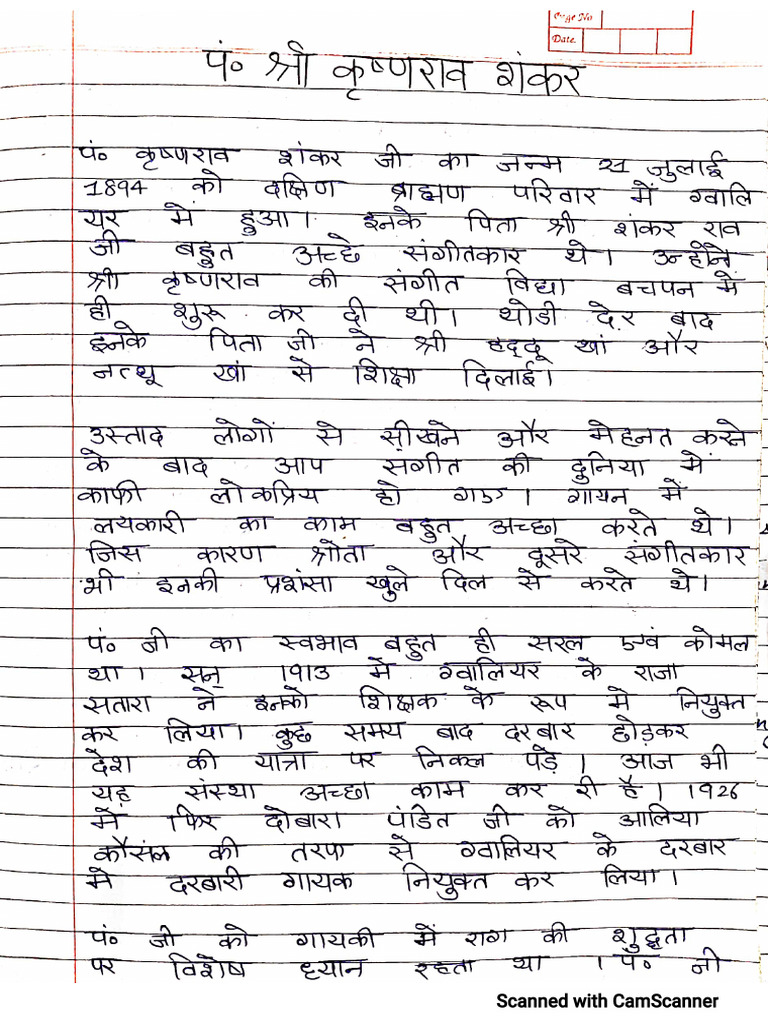 Page No
Date
पं॰ श्री कृष्णराव शंकर
पं॰ कृष्णराव शंकर जी का जन्म 21 जुलाई
1894 को दक्षिण ब्राह्मण परिवार में ग्वालि
यर में हुआ। इनके पिता श्री शंकर राव
जी बहुत अच्छे संगीतकार थे। उन्होंने
श्री कृष्णराव की संगीत विद्या बचपन में
ही शुरू कर दी थी। थोडी देर बाद
इनके पिता जी ने श्री हद्दू खां और
नत्थू खां से शिक्षा दिलाई।
उस्ताद लोगों से सीखने और मेहनत करने
के बाद आप संगीत की दुनिया में
काफी लोकप्रिय हो गए। गायन में
लयकारी का काम बहुत अच्छा करते थे।
जिस कारण श्रोता और दूसरे संगीतकार
भी इनकी प्रशंसा खुले दिल से करते थे।
पं॰ जी का स्वभाव बहुत ही सरल एवं कोमल
था। सन् 1913 में ग्वालियर के राजा
सतारा ने इनको शिक्षक के रूप मे नियुक्त
कर लिया। कुछ समय बाद दरबार छोड़कर
देश की यात्रा पर निकल पड़े। आज भी
यह संस्था अच्छा काम कर री है। 1926
में फिर दोबारा पंडित जी को आलिया
कौसंल की तरफ से ग्वालियर के दरबार
में दरबारी गायक नियुक्त कर लिया।
पं॰ जी को गायकी में राग की शुद्धता
पर विशेष ध्यान रहता था । पं॰ जी
Scanned with CamScanner